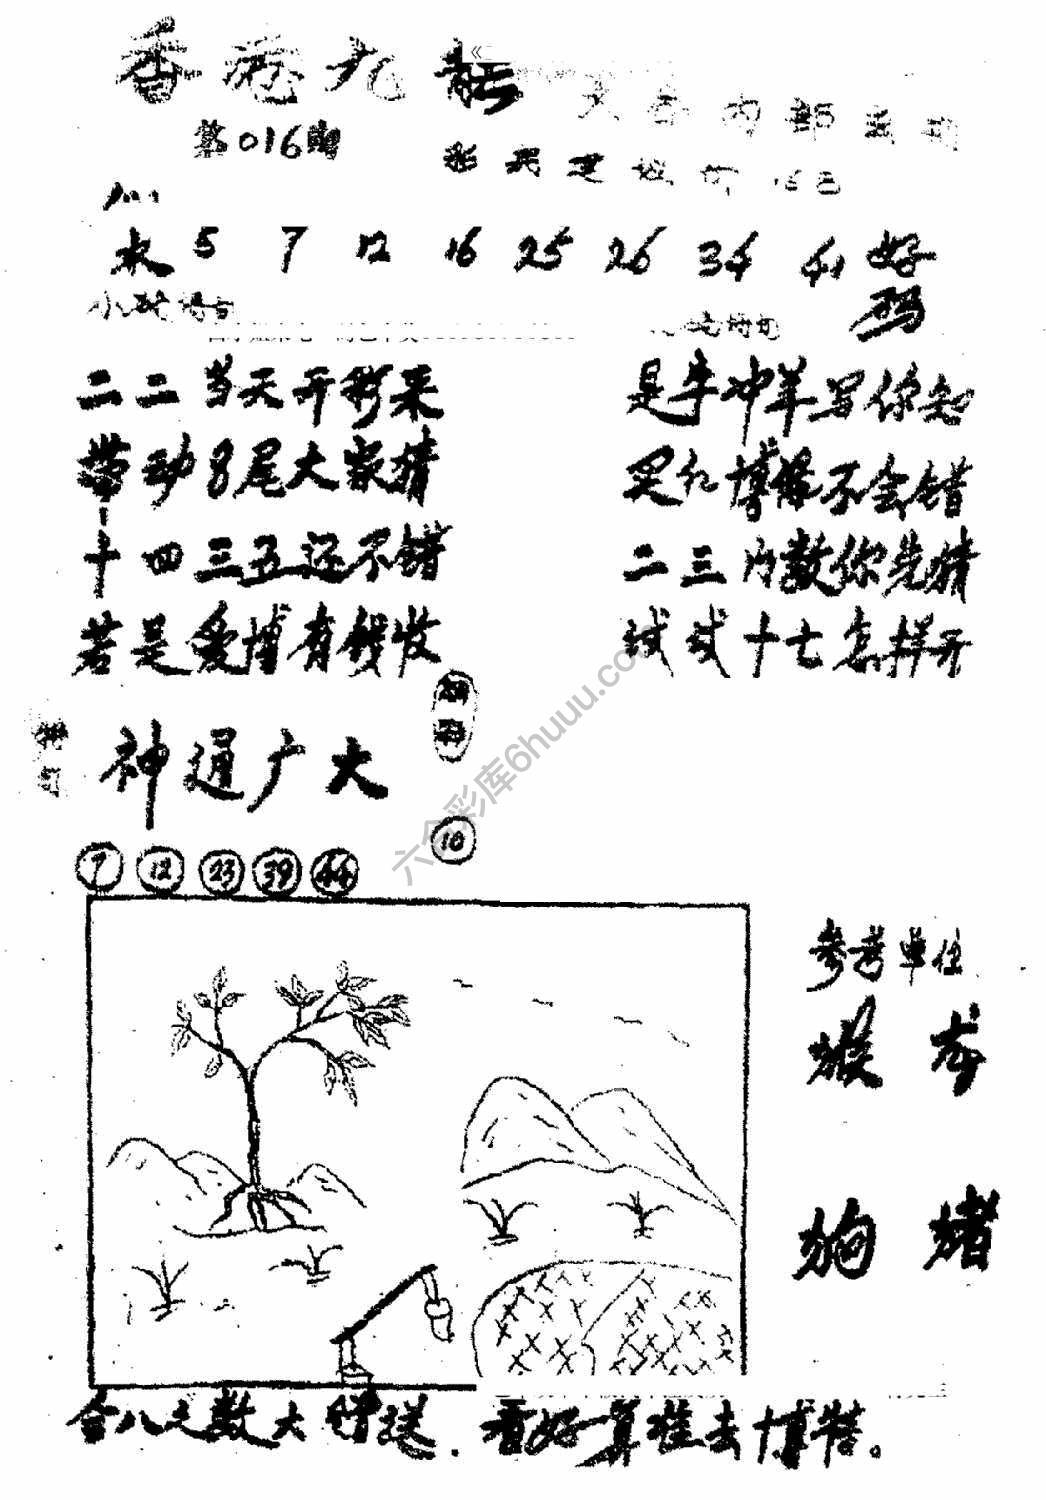 香港九龙
第016期
六合内部
彩民建议价
水 5 7 12 16 25 26 34 41 好
码
二二当天开彩来
是牛冲羊写你知
带动8尾大家猜
买红博绿不会错
十四三五还不错
二三门数你先猜
若是爱博有钱收
试试十七怎样开
神通广大
10
7 12 23 39 44
参考单位
猴 龙
狗 猪
合八之数大赠送.看好算准去博特。
六合彩库6huuu.com